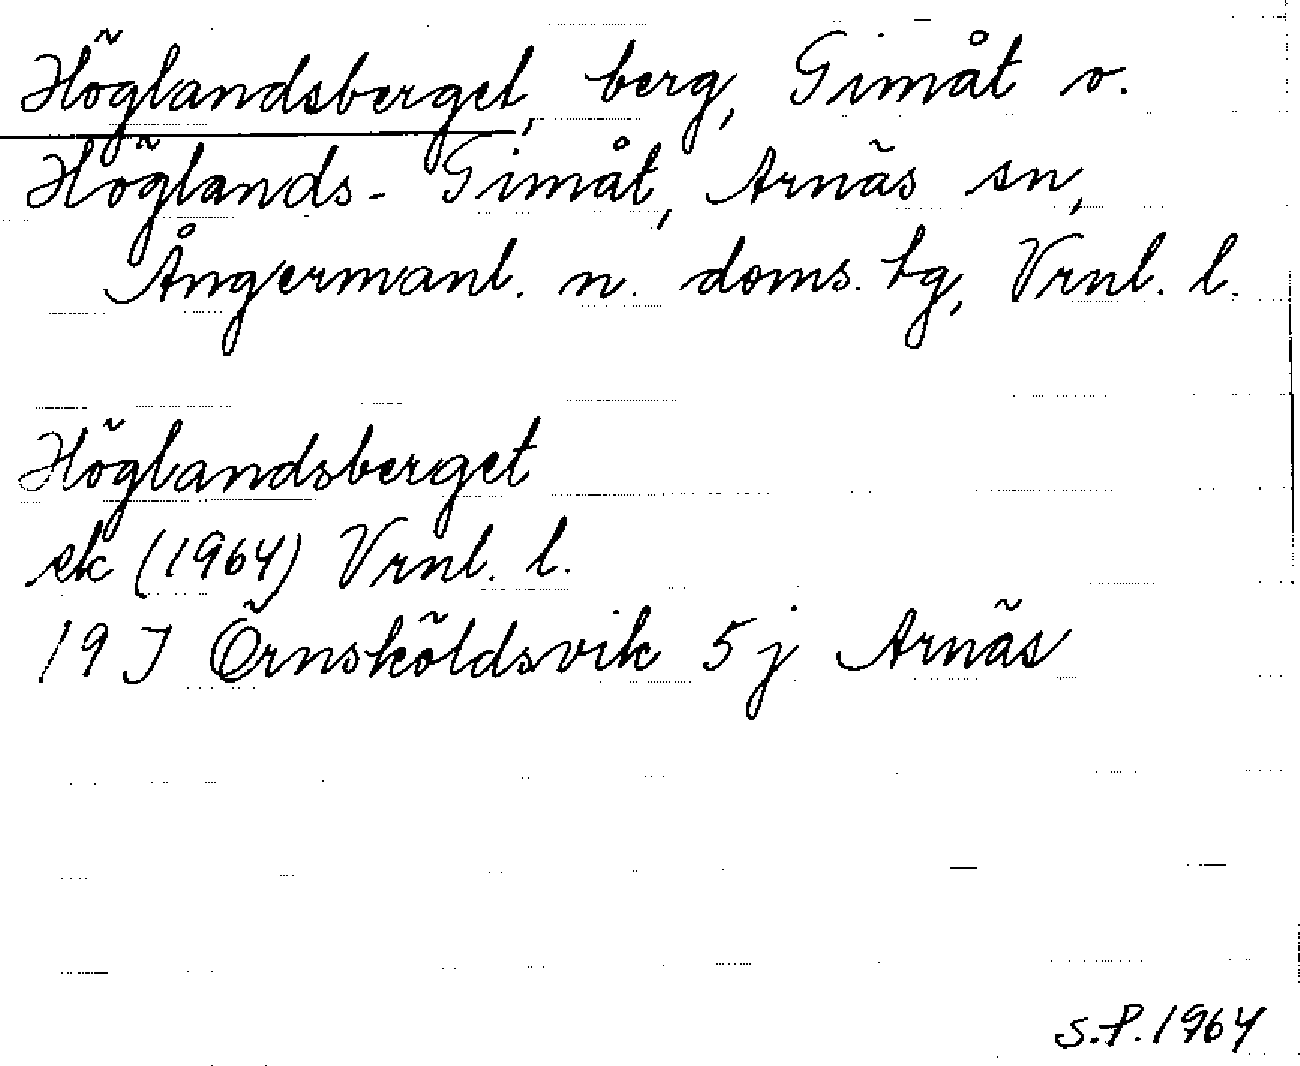 Höglandsberget, berg, Gimåt o.
Höglands-Gimåt, Arnäs sn,
Ångermanl. n. doms. tg, Vrnl. l.
Höglandsberget
ek (1964) Vrnl. l.
19 J Örnsköldsvik 5 j Arnäs
S.P. 1964